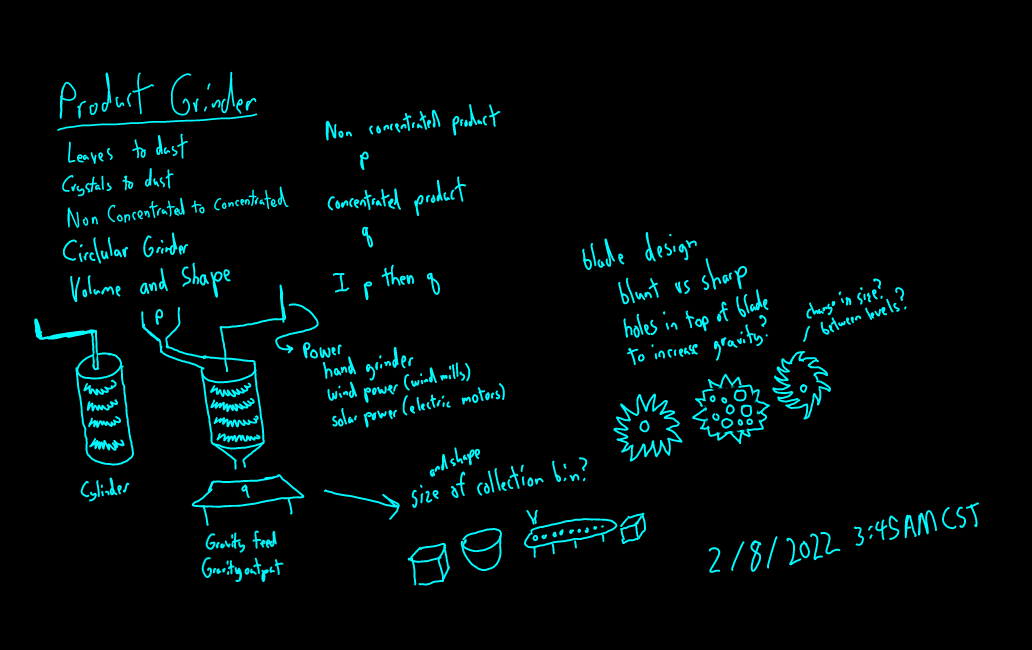 Product Grinder
Leaves to dust
Crystals to dust
Non Concentrated to Concentrated
Circlular Grinder
Volume and Shape
P
Cylinder
q
Gravity feed
Gravity output
Non concentrated product
p
concentrated product
q
I p then q
Power
hand grinder
wind power (wind mills)
solar power (electric motors)
and shape
size of collection bin?
blade design
blunt vs sharp
holes in top of blade
to increase gravity?
change in size?
between levels?
2/8/2022 3:45AM CST